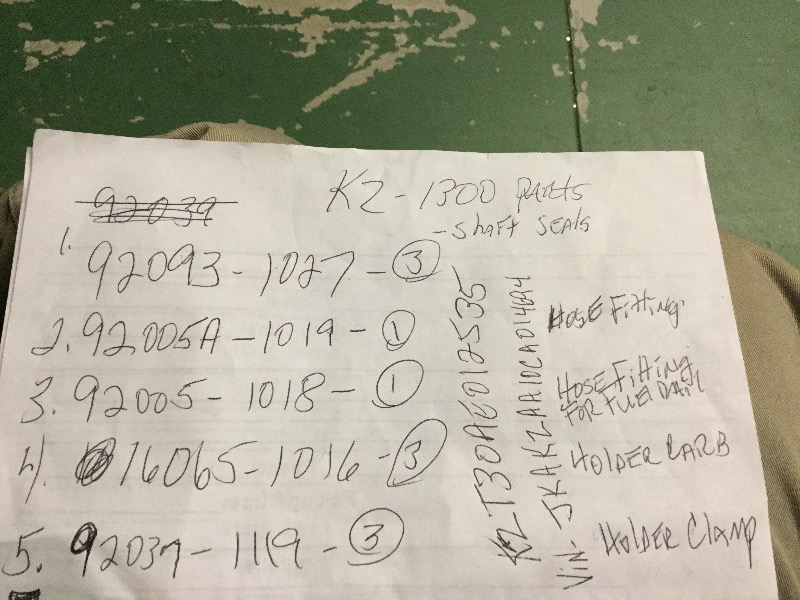 KZ-1300 parts
- Shaft SEALS
1. 92093-1027-3
2. 92005A-1019-1
HOSE Fitting
3. 92005-1018-1
HOSE Fitting
FOR FUEL RAIL
4. 16065-1016-3
HOLDER CARB
5. 92037-1119-3
HOLDER Clamp
KZT30AE012535
ViN-